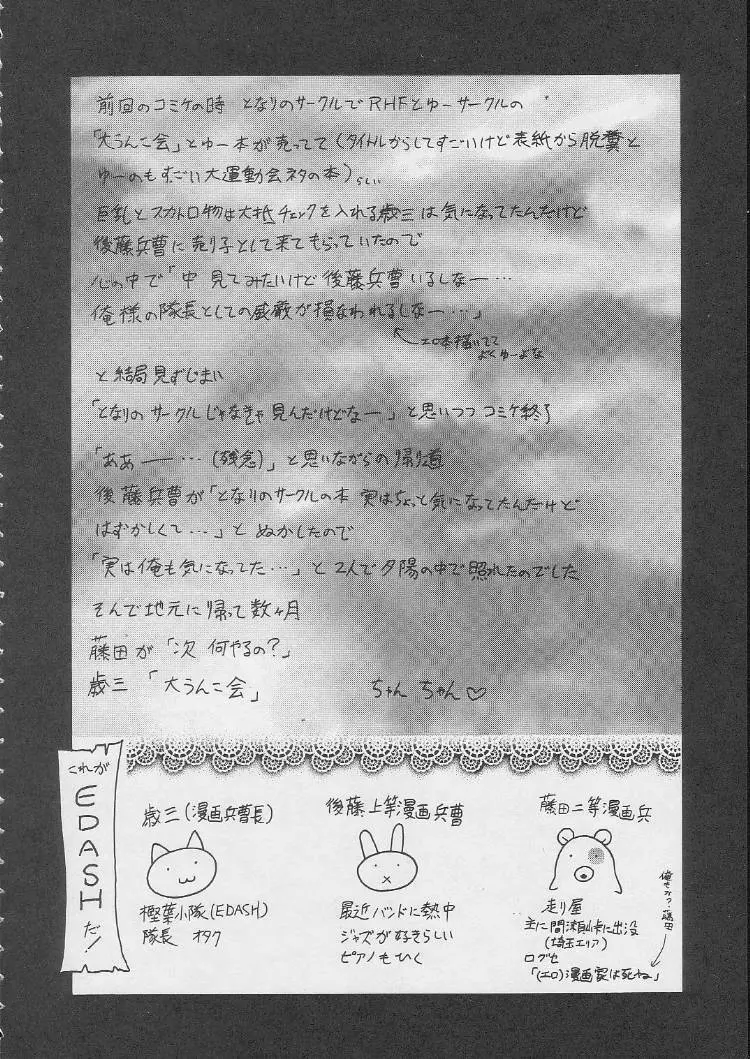 前回のコミケの時 となりのサークルでRHFとゆーサークルの
「大うんこ会」とゆー本が売ってて(タイトルからしてすごいけど表紙から脱糞と
ゆーのもすごい大運動会ネタの本)らしい
巨乳とスカトロ物は大抵チェックを入れる歳三は気になってたんだけど
後藤兵曹に売り子として来てもらっていたので
心の中で「中 見てみたいけど後藤兵曹いるしなー…
俺様の隊長としての威厳が損なわれるしなー…」
エロ本描いてて
よくゆーよな
と結局見ずじまい
「となりのサークルじゃなきゃ見んだけどなー」と思いつつコミケ終了
「ああ――…(残念)」と思いながらの帰り道
後藤兵曹が「となりのサークルの本 実はちょっと気になってたんだけど
はずかしくて…」とぬかしたので
「実は俺も気になってた…」と2人で夕陽の中で照れたのでした
そんで地元に帰って数ヶ月
藤田が「次 何やるの?」
歳三「大うんこ会」 ちゃん ちゃん♡
これが
EDASH
だ!
歳三(漫画兵曹長)
樫葉小隊(EDASH)
隊長 オタク
後藤上等漫画兵曹
最近バンドに熱中
ジャズが好きらしい
ピアノもひく
藤田二等漫画兵
走り屋
主に間瀬峠に出没
(埼玉エリア)
口グセ
「(エロ)漫画家は死ね」
俺もか?藤田